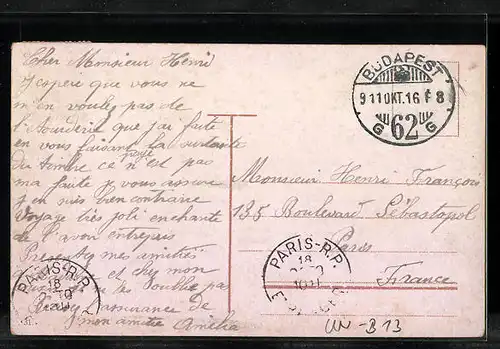 Cher Monsieur Henri
J'espere que vous ne
m'en voulez pas de
l'etourderie que j'ai faite
en vous faisant la
du timbre ce n'est pas
ma faute je vous assure
j'en suis bien contraire
Voyage très joli enchante
de l'avoir entrepris
Presentez mes amities
et chez mon
ne oublie pas
l'assurance de
mon amitie Amelia
BUDAPEST
911OKT.16 F 8
G 62 G
Monsieur Henri François
135 Boulevard Sébastopol
Paris
France
PARIS-R.P.
18
PARIS-R.P.
18
UN-B13